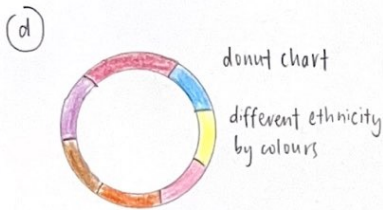 d
donut chart
different ethnicity
by colours